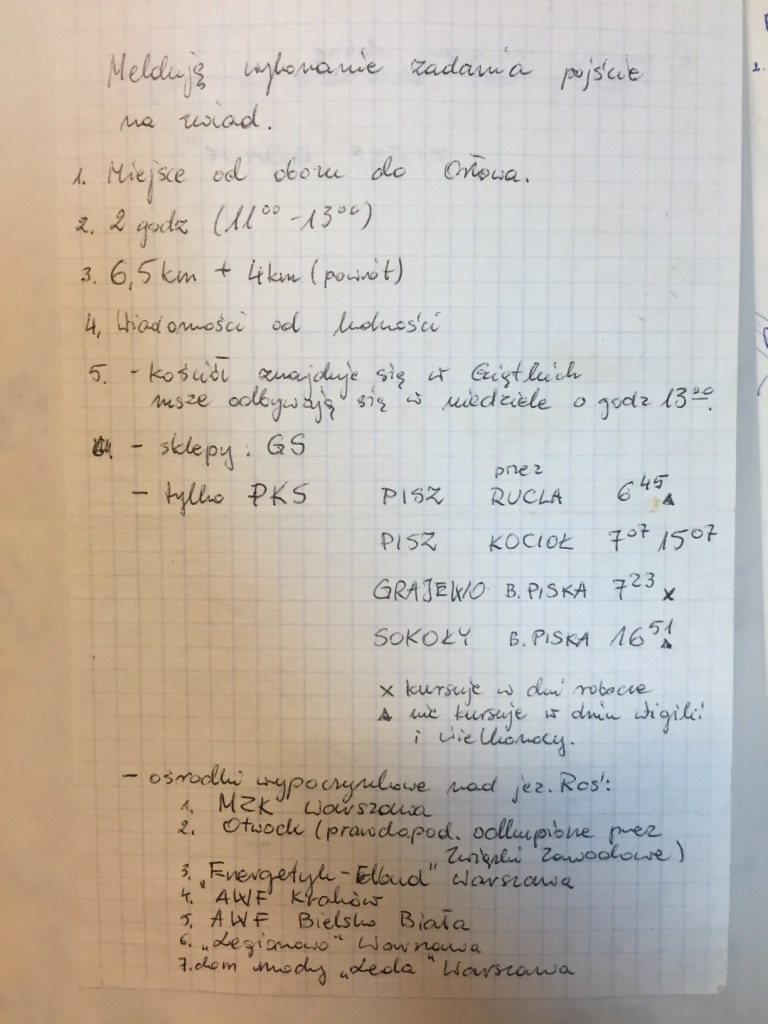 Melduję wykonanie zadania pójście
na zwiad.
1. Miejsce od obozu do Orłowa.
2. 2 godz (11⁰⁰ - 13⁰⁰)
3. 6,5 km + 4 km (powrót)
4, Wiadomości od ludności
5. - kościół znajduje się w Giętkich
msze odbywają się w niedziele o godz 13⁰⁰.
- sklepy: GS
przez
- tylko PKS PISZ RUCLA 6⁴⁵ ▲
PISZ KOCIOŁ 7⁰⁷ 15⁰⁷
GRAJEWO B. PISKA 7²³ x
SOKOŁY B. PISKA 16⁵¹ ▲
x kursuje w dni robocze
▲ nie kursuje w dniu Wigilii
i Wielkanocy.
- ośrodki wypoczynkowe nad jez. Roś:
1. MZK Warszawa
2. Otwock (prawdopod. odkupione przez
Związki Zawodowe)
3. „Energetyk-Elbud" Warszawa
4. AWF Kraków
5. AWF Bielsko Biała
6. „Legionowo" Warszawa
7. dom mody „Leda" Warszawa